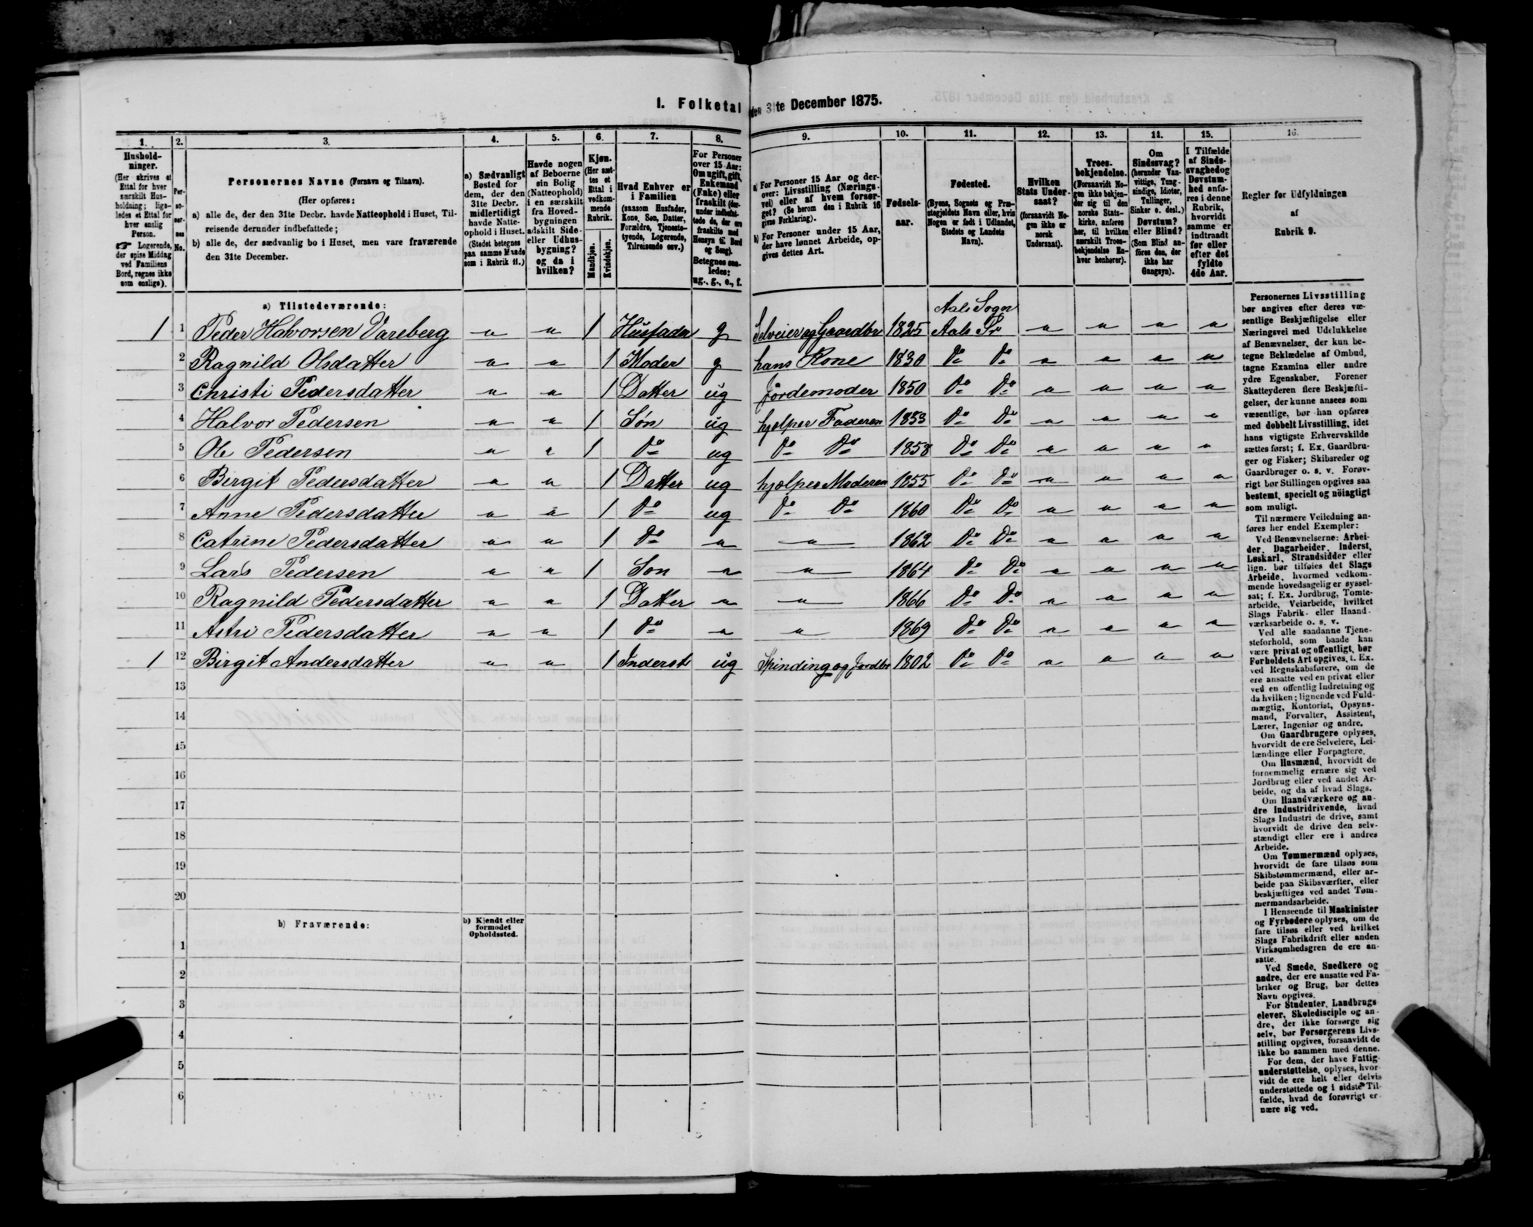 I. Folketal den 31te December 1875.
1. 2. 3. 4. 5. 6. 7. 8. 9. 10. 11. 12. 13. 14. 15. 16.
Hushold-
ninger.
(Her skrives et
Ettal for hver
særskilt Hus-
holdning; liga-
ledes et Ettal for
hver enslig
Person.
☞ Logerende,
der spise Middag
ved Familiens
Bord, regnes ikke
som enslige).
Per-
so-
ner-
nes
No.
Personernes Navne (Fornavn og Tilnavn).
(Her opføres:
a) alle de, der den 31te Decbr. havde Natteophold i Huset, Til-
reisende derunder indbefattede;
b) alle de, der sædvanlig bo i Huset, men vare fraværende
den 31te December.
a) Sædvanligt
Bosted for
dem, der den
31te Decbr.
midlertidigt
havde Natte-
ophold i Huset.
(Stedet betegnes
paa samme Maade
som i Rubrik 11.)
Havde nogen
af Beboerne
sin Bolig
(Natteophold)
i en særskilt
fra Hoved-
bygningen
adskilt Side-
eller Udhus-
bygning?
og da i
hvilken?
Kjøn.
(Her sæt-
tes et
Ettal i
vedkom-
mende
Rubrik.
Mandkjøn.
Kvindekjøn.
Hvad Enhver er
i Familien
(saasom Husfader,
Kone, Søn, Datter,
Forældre, Tjeneste-
tyende, Logerende,
Tilreisende osv.)
For Personer
over 15 Aar:
Om ugift, gift,
Enkemand
(Enke) eller
fraskilt (der-
under indbefat-
tede de, der ere
fraskilte med
Hensyn til Bord
og Seng).
Betegnes saa-
ledes:
ug., g., e., f.
a) For Personer 15 Aar og der-
over: Livsstilling (Nærings-
vei) eller af hvem forsør-
get? (Se herom den i Rubrik 16
givne Forklaring).
b) For Personer under 15 Aar,
der have lønnet Arbeide, op-
gives dettes Art.
Fødsels-
aar.
Fødested.
(Byens, Sognets og Præ-
stegjeldets Navn eller, hvis
Nogen er født i Udlandet,
Stedets og Landets
Navn).
Hvilken
Stats Under-
saat?
(forsaavidt No-
gen ikke er
norsk
Undersaat).
Troes-
bekjendelse.
(Forsaavidt No-
gen ikke bekjen-
der sig til den
norske Stats-
kirke, anføres
her, til hvilken
særskilt Troes-
bekjendelse En-
hver henhører).
Om
Sindssvag?
(herunder Van-
vittige, Tung-
sindige, Idioter,
Tullinger,
Sinker o. desl.)
Døvstum?
eller Blind?
(Som Blind an-
føres den, der
ikke har
Gangsyn).
I Tilfælde
af Sinds-
svaghed og
Døvstum-
hed anfø-
res i denne
Rubrik,
hvorvidt
samme er
indtraadt
før eller
efter det
fyldte
4de Aar.
Regler før Udfyldningen
af
Rubrik 9.
a) Tilstedeværende:
Aals Sogn
1 1 Peder Halvorsen Vareberg „ „ 1 Husfader g Selveier og Gaardbr 1825 Aals Pr „ „ „ „
2 Ragnild Olsdatter „ „ 1 Moder g hans Kone 1830 Do Do „ „ „ „
3 Christi Pedersdatter „ „ 1 Datter ug Jordemoder 1850 Do Do „ „ „ „
4 Halvor Pedersen „ „ 1 Søn ug hjælper Faderen 1853 Do Do „ „ „ „
5 Ole Pedersen „ „ 1 Do ug Do Do 1858 Do Do „ „ „ „
6 Birgit Pedersdatter „ „ 1 Datter ug hjælper Moderen 1855 Do Do „ „ „ „
7 Anne Pedersdatter „ „ 1 Do ug Do Do 1860 Do Do „ „ „ „
8 Catrine Pedersdatter „ „ 1 Do „ „ 1862 Do Do „ „ „ „
9 Lars Pedersen „ „ 1 Søn „ „ 1864 Do Do „ „ „ „
10 Ragnild Pedersdatter „ „ 1 Datter „ „ 1866 Do Do „ „ „ „
11 Astri Pedersdatter „ „ 1 Do „ „ 1869 Do Do „ „ „ „
1 12 Birgit Andersdatter „ „ 1 Inderst ug Spinding og Jordbr 1802 Do Do „ „ „ „
13
14
15
16
17
18
19
20
b) Fraværende:
b) Kjendt eller
formodet
Opholdssted.
1
2
3
4
5
6
Personernes Livsstilling
bør angives efter deres væ-
sentlige Beskjæftigelse eller
Næringsvei med Udelukkelse
af Benævnelser, der kun be-
tegne Beklædelse af Ombud,
tagne Examina eller andre
ydre Egenskaber. Forener
Skatteyderen flere Beskjæfti-
gelser, der kunne ansees som
væsentlige, bør han opføres
med dobbelt Livsstilling, idet
hans vigtigste Erhvervskilde
sættes først; f. Ex. Gaardbru-
ger og Fisker; Skibsreder og
Gaardbruger o. s. v. Forøv-
rigt bør Stillingen opgives saa
bestemt, specielt og nöiagtigt
som muligt.
Til nærmere Veiledning an-
føres her endel Exempler:
Ved Benævnelserne: Arbei-
der, Dagarbeider, Inderst,
Løskarl, Strandsidder eller
lign. bør tilføies det Slags
Arbeide, hvormed vedkom-
mende hovedsagelig er syssel-
sat; f. Ex. Jordbrug, Tomte-
arbeide, Veiarbeide, hvilket
Slags Fabrik- eller Haand-
værksarbeide o. s. v.
Ved alle saadanne Tjene-
steforhold, som baade kan
være privat og offentligt, bør
Forholdets Art opgives, f. Ex.
ved Regnskabsførere, om de
ere ansatte ved en privat eller
ved en offentlig Indretning og
da hvilken; lignende ved Fuld-
mægtig, Kontorist, Opsyns-
mand, Forvalter, Assistent,
Lærer, Ingeniør og andre.
Om Gaardbrugere oplyses,
hvorvidt de ere Selveiere, Lei-
lændinge eller Forpagtere.
Om Husmænd, hvorvidt de
fornemmelig ernære sig ved
Jordbrug eller ved andet Ar-
beide, og da af hvad Slags.
Om Haandværkere og an-
dre Industridrivende, hvad
Slags Industri de drive, samt
hvorvidt de drive den selv-
stændigt eller ere i andres
Arbeide.
Om Tømmermænd oplyses,
hvorvidt de fare tilsøs som
Skibstømmermænd, eller ar-
beide paa Skibsværfter, eller
beskjæftiges ved andet Tøm-
mermandsarbeide.
I Henseende til Maskinister
og Fyrbødere oplyses, om de
fare tilsøs eller ved hvilket
Slags Fabrikdrift eller anden
Virksomhedsgren de ere an-
satte.
Ved Smede, Snedkere og
andre, der ere ansatte ved Fa-
briker og Brug, bør dettes
Navn opgives.
For Studenter, Landbrugs-
elever, Skoledisciple og an-
dre, der ikke forsørge sig
selv, bør Forsørgerens Livs-
stilling opgives, forsaavidt de
ikke bo sammen med denne.
For dem, der have Fattig-
understøttelse, oplyses, hvor-
vidt de ere helt eller delvis
understøttede og i sidste Til-
fælde, hvad de forøvrigt er-
nære sig ved.